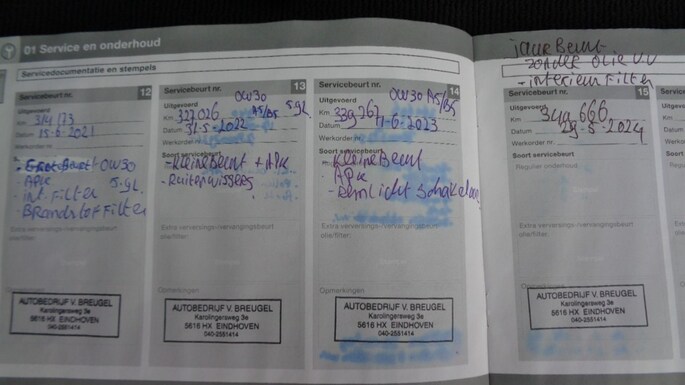 01 Service en onderhoud
Servicedocumentatie en stempels
Servicebeurt nr. 12
Uitgevoerd
Km 314173
Datum 15-6-2021
Werkorder nr.
Soort servicebeurt
- Beurt 0W30
- APK 5.9L
- int. Filter
- Brandstof Filter
Extra verversings-/vervangingsbeurt
olie/filter:
Opmerkingen
AUTOBEDRIJF V. BREUGEL
Karolingersweg 3e
5616 HX EINDHOVEN
040-2551414
Servicebeurt nr. 13
0W30
Uitgevoerd A5/B5 5.9L
Km 327026
Datum 31-5-2022
Werkorder nr.
Soort servicebeurt
- Kleine Beurt + APK
- Ruitenwissers
Extra verversings-/vervangingsbeurt
olie/filter:
Opmerkingen
AUTOBEDRIJF V. BREUGEL
Karolingersweg 3e
5616 HX EINDHOVEN
040-2551414
Servicebeurt nr. 14
0W30 A5/B5
Uitgevoerd
Km 339767
Datum 1-6-2023
Werkorder nr.
Soort servicebeurt
- Kleine Beurt
- APK
- Remlicht schakelaar
Extra verversings-/vervangingsbeurt
olie/filter:
Opmerkingen
AUTOBEDRIJF V. BREUGEL
Karolingersweg 3e
5616 HX EINDHOVEN
040-2551414
jaar Beurt
zonder olie VV
- interieur Filter
Servicebeurt nr. 15
Uitgevoerd
Km 344.666
Datum 29-5-2024
Werkorder nr.
Soort servicebeurt
Regulier onderhoud
Extra verversings-/vervangingsbeurt
olie/filter:
Opmerkingen
AUTOBEDRIJF V. BREUGEL
Karolingersweg 3e
5616 HX EINDHOVEN
040-2551414